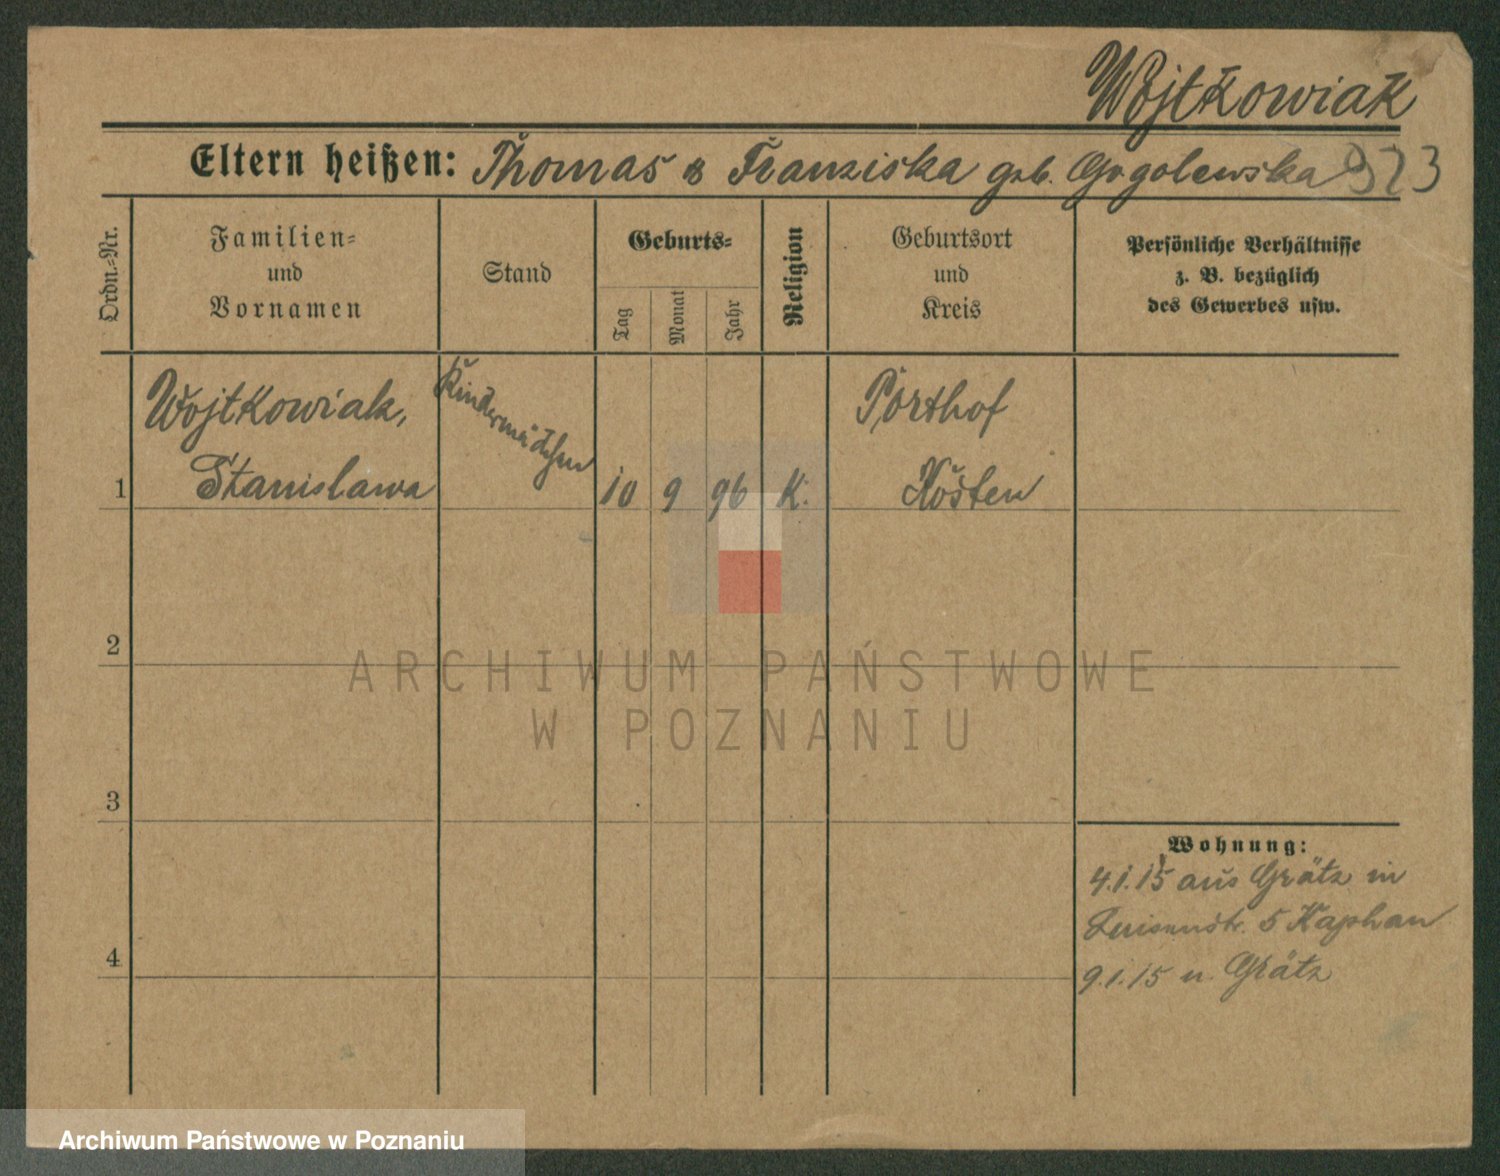 Wojtkowiak
Eltern heißen: Thomas & Franziska geb. Gogolewska 323
Ordn.-Nr.
Familien-
und
Vornamen
Stand
Geburts-
Tag
Monat
Jahr
Religion
Geburtsort
und
Kreis
Persönliche Verhältnisse
z. B. bezüglich
des Gewerbes usw.
Wojtkowiak,
Kindermädchen
Porthof
1 Stanislawa 10 9 96 K. Kosten
2
3
4
Wohnung:
4.1.15 aus Grätz in
Luisenstr. 5 Kaphan
9.1.15 n. Grätz
ARCHIWUM PAŃSTWOWE
W POZNANIU
Archiwum Państwowe w Poznaniu